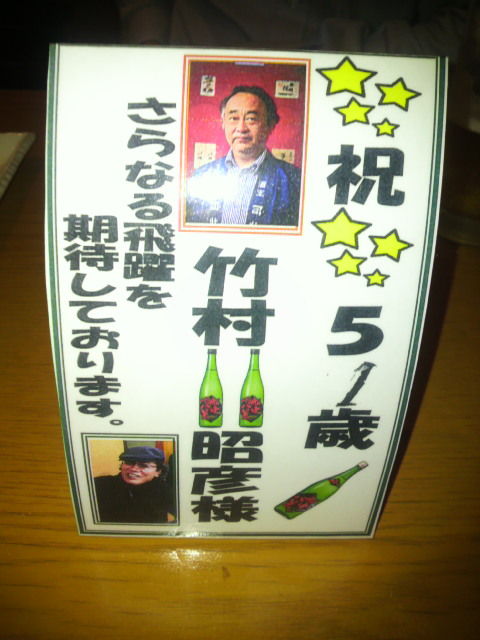 祝
51歳
竹村
昭彦様
さらなる飛躍を
期待しております。